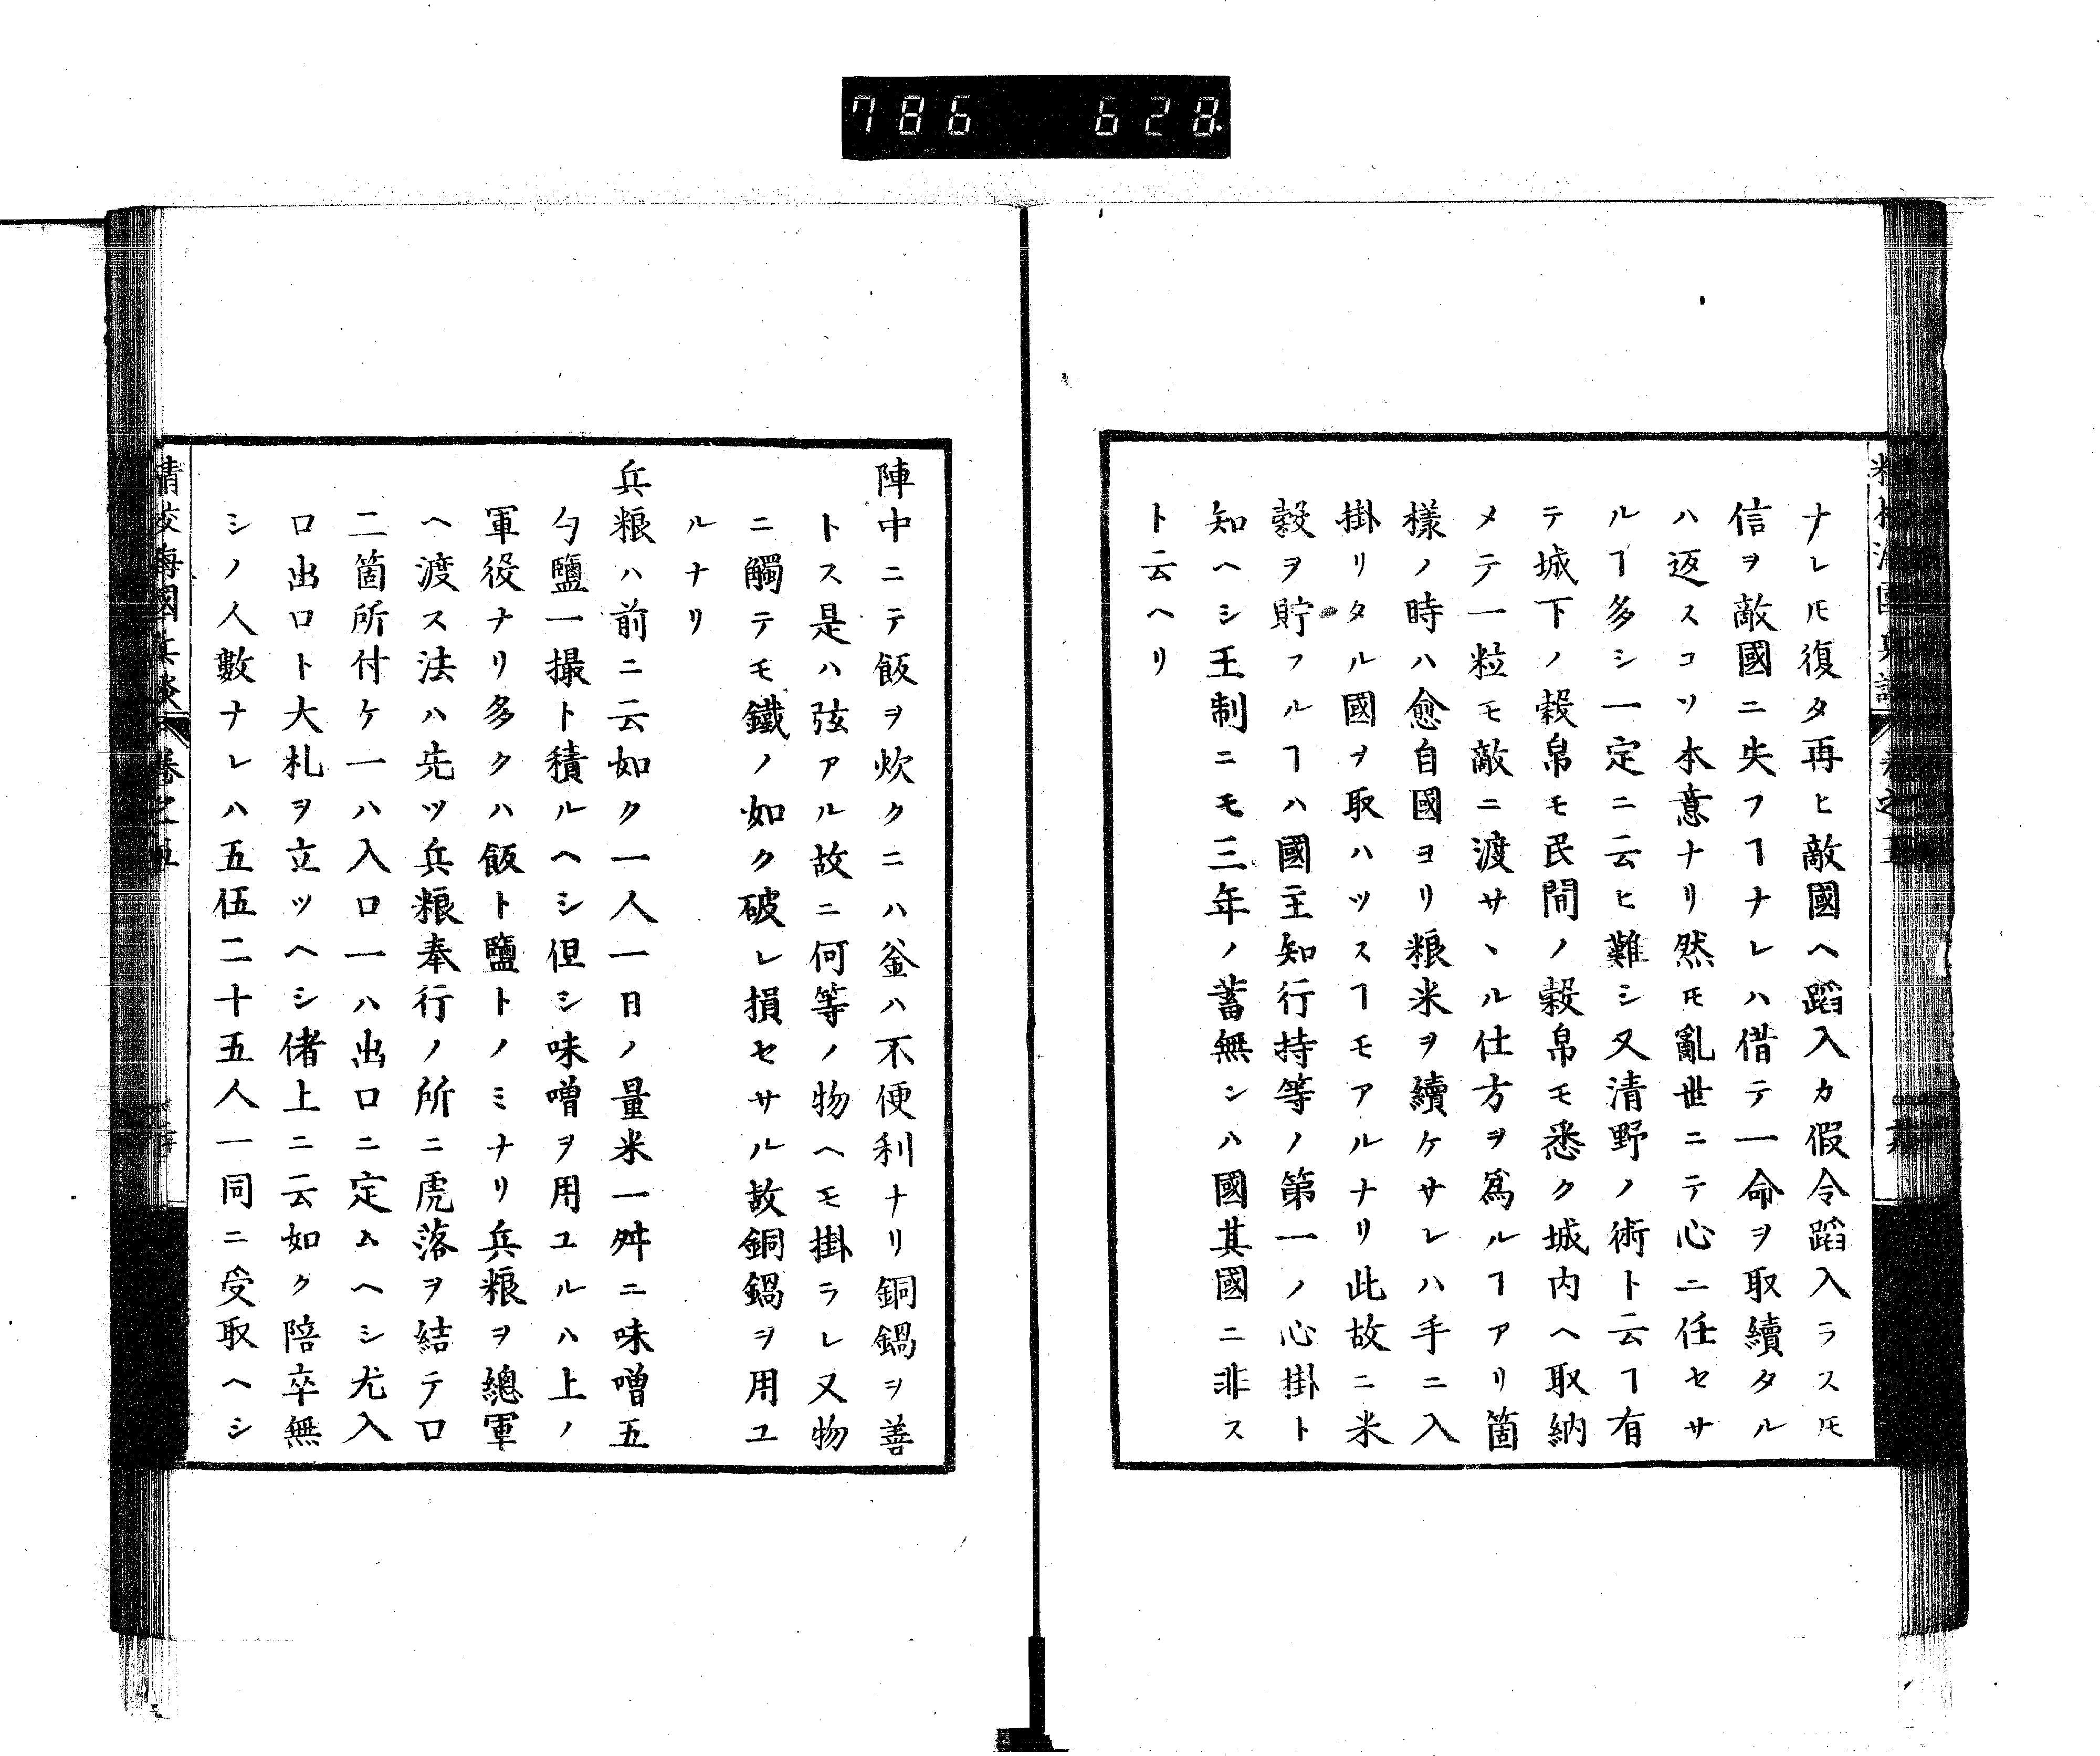 786 628
ナレ𪜈復タ再ヒ敵國ヘ蹈入カ假令蹈入ラス𪜈
信ヲ敵國ニ失フヿナレハ借テ一命ヲ取續タル
ハ返スコソ本意ナリ然𪜈亂世ニテ心ニ任セサ
ルヿ多シ一定ニ云ヒ難シ又清野ノ術ト云ヿ有
テ城下ノ穀帛モ民間ノ穀帛モ悉ク城内ヘ取納
メテ一粒モ敵ニ渡サヽル仕方ヲ爲ルヿアリ箇
樣ノ時ハ愈自國ヨリ粮米ヲ續ケサレハ手ニ入
掛リタル國ヲ取ハツスヿモアルナリ此故ニ米
穀ヲ貯フルヿハ國主知行持等ノ第一ノ心掛ト
知ヘシ王制ニモ三年ノ蓄無ンハ國其國ニ非ス
ト云ヘリ
陣中ニテ飯ヲ炊クニハ釜ハ不便利ナリ銅鍋ヲ善
トス是ハ弦アル故ニ何等ノ物ヘモ掛ラレ又物
ニ觸テモ鐵ノ如ク破レ損セサル故銅鍋ヲ用ユ
ルナリ
兵粮ハ前ニ云如ク一人一日ノ量米一舛ニ味噌五
勺鹽一撮ト積ルヘシ但シ味噌ヲ用ユルハ上ノ
軍役ナリ多クハ飯ト鹽トノミナリ兵粮ヲ總軍
ヘ渡ス法ハ先ツ兵粮奉行ノ所ニ虎落ヲ結テ口
二箇所付ケ一ハ入口一ハ出口ニ定ムヘシ尤入
口出口ト大札ヲ立ツヘシ偖上ニ云如ク陪卒無
シノ人數ナレハ五伍二十五人一同ニ受取ヘシ
精校海國兵談 卷之五